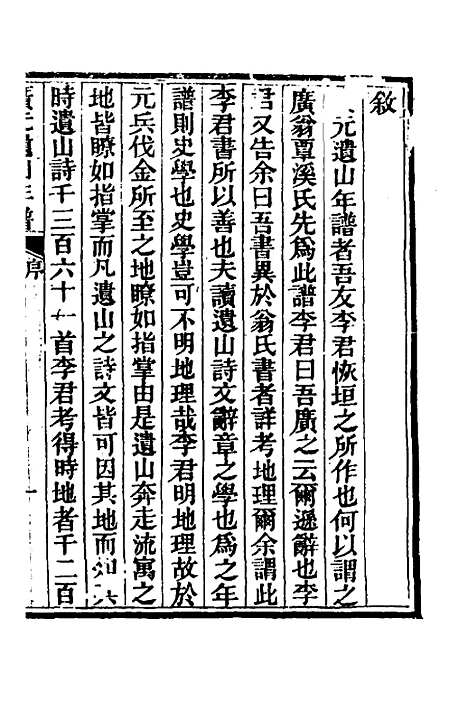 敘
元遺山年譜者吾友李君恢垣之所作也何以謂之
廣翁覃溪氏先爲此譜李君曰吾廣之云爾遜辭也李
君又告余曰吾書異於翁氏書者詳考地理爾余謂此
李君書所以善也夫讀遺山詩文辭章之學也爲之年
譜則史學也史學豈可不明地理哉李君明地理故於
元兵伐金所至之地瞭如指掌由是遺山奔走流寓之
地皆瞭如指掌而凡遺山之詩文皆可因其地而知其
時遺山詩千三百六十一首李君考得時地者千二百
廣元遺山年譜 序